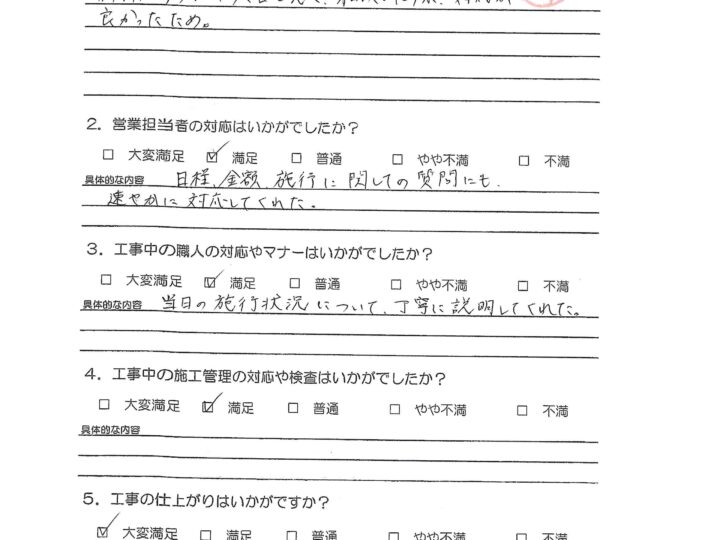 良かったため。
2. 営業担当者の対応はいかがでしたか?
□ 大変満足 ☑ 満足 □ 普通 □ やや不満 □ 不満
具体的な内容 日程、金額、施行に関しての質問にも、
速やかに対応してくれた。
3. 工事中の職人の対応やマナーはいかがでしたか?
□ 大変満足 ☑ 満足 □ 普通 □ やや不満 □ 不満
具体的な内容 当日の施行状況について、丁寧に説明してくれた。
4. 工事中の施工管理の対応や検査はいかがでしたか?
□ 大変満足 ☑ 満足 □ 普通 □ やや不満 □ 不満
具体的な内容
5. 工事の仕上がりはいかがですか?
☑ 大変満足 □ 満足 □ 普通 □ やや不満 □ 不満